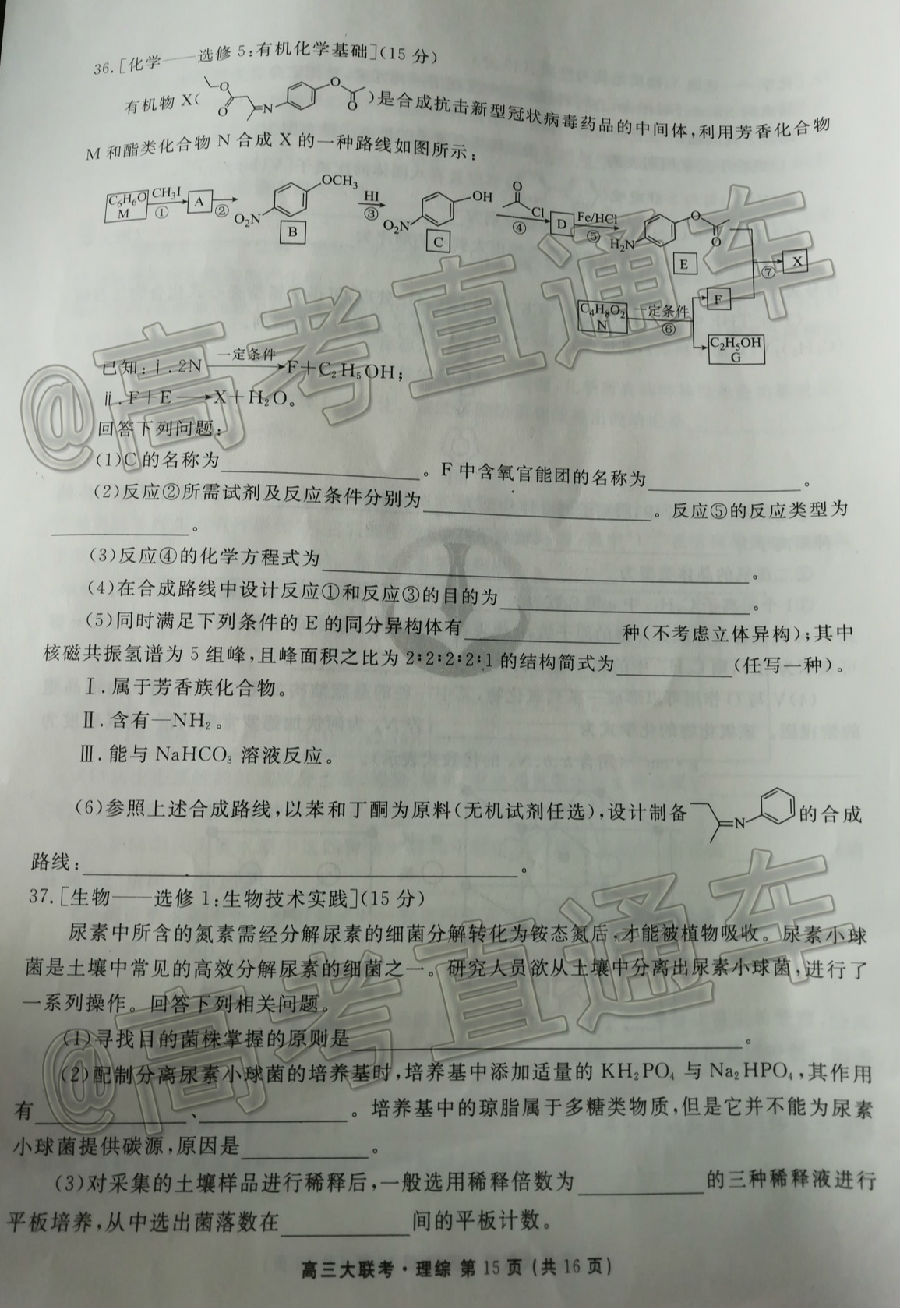 36.[化学——选修5:有机化学基础](15分)
有机物X( O O N O O )是合成抗击新型冠状病毒药品的中间体,利用芳香化合物
M和酯类化合物N合成X的一种路线如图所示:
C₆H₆O M CH₃I ① A ② O₂N OCH₃ B HI ③ O₂N OH C O Cl ④ D Fe/HCl ⑤ H₂N O O E ⑦ X
C₄H₈O₂ N 一定条件 ⑥ F
C₂H₅OH G
已知:ⅰ.2N 一定条件 → F+C₂H₅OH;
ⅱ.F+E → X+H₂O。
回答下列问题:
(1)C的名称为______。F中含氧官能团的名称为______。
(2)反应②所需试剂及反应条件分别为______。反应⑤的反应类型为
______。
(3)反应④的化学方程式为______。
(4)在合成路线中设计反应①和反应③的目的为______。
(5)同时满足下列条件的E的同分异构体有______种(不考虑立体异构);其中
核磁共振氢谱为5组峰,且峰面积之比为2∶2∶2∶2∶1的结构简式为______(任写一种)。
Ⅰ.属于芳香族化合物。
Ⅱ.含有—NH₂。
Ⅲ.能与NaHCO₃溶液反应。
(6)参照上述合成路线,以苯和丁酮为原料(无机试剂任选),设计制备 N 的合成
路线:______。
37.[生物——选修1:生物技术实践](15分)
尿素中所含的氮素需经分解尿素的细菌分解转化为铵态氮后,才能被植物吸收。尿素小球
菌是土壤中常见的高效分解尿素的细菌之一。研究人员欲从土壤中分离出尿素小球菌,进行了
一系列操作。回答下列相关问题。
(1)寻找目的菌株掌握的原则是______。
(2)配制分离尿素小球菌的培养基时,培养基中添加适量的KH₂PO₄与Na₂HPO₄,其作用
有______、______。培养基中的琼脂属于多糖类物质,但是它并不能为尿素
小球菌提供碳源,原因是______。
(3)对采集的土壤样品进行稀释后,一般选用稀释倍数为______的三种稀释液进行
平板培养,从中选出菌落数在______间的平板计数。
高三大联考·理综 第15页(共16页)
@高考直通车
@高考直通车